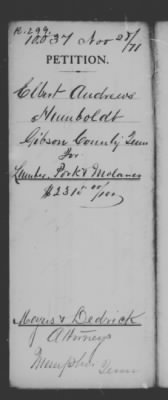 R. 299.
10037 Nov 28/71
PETITION.
Elbert Andrews
Humboldt
Gibson County Tenn
For
Lumber, Pork & Molasses
$2315 00/100
Meyers & Dedrick
Attorneys
Memphis
Tenn